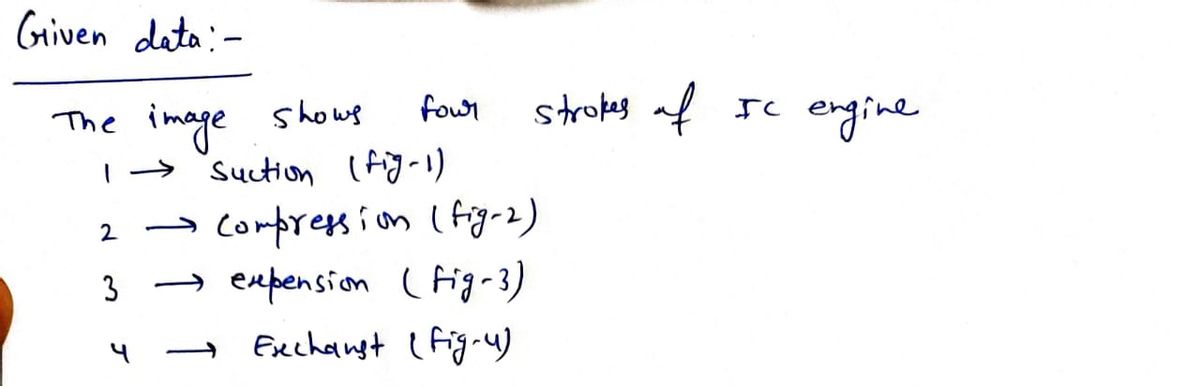 Given data:-
The image shows four strokes of IC engine
1 → Suction (fig-1)
2 → Compression (fig-2)
3 → expension (fig-3)
4 → Exchaust (fig-4)